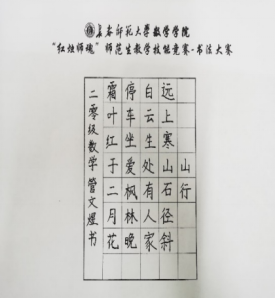 长春师范大学数学学院
“红烛师魂”师范生教学技能竞赛-书法大赛
山行
远上寒山石径斜
白云生处有人家
停车坐爱枫林晚
霜叶红于二月花
二零级数学管文煜书